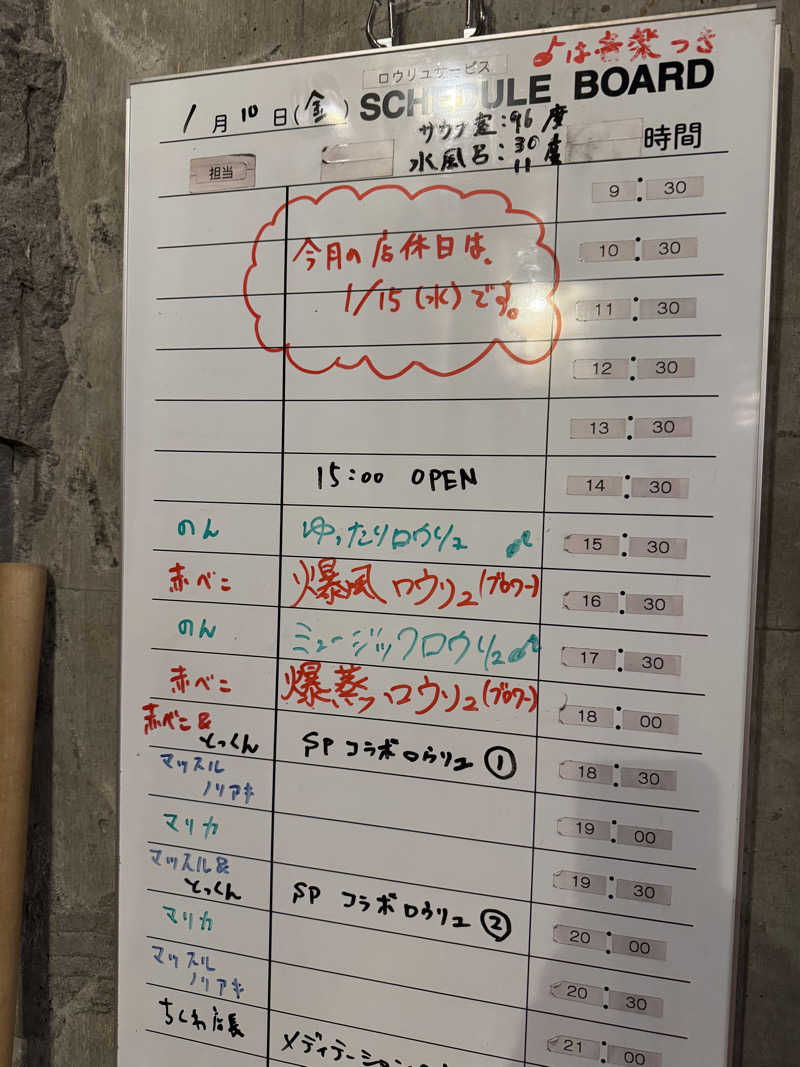 ♪は音楽つき
ロウリュサービス
SCHEDULE BOARD
1月10日(金)
サウナ室:96度
水風呂:30度
11
担当
時間
9:30
10:30
今月の店休日は、
1/15(水)です。
11:30
12:30
13:30
15:00 OPEN 14:30
のん ゆったりロウリュ ♪ 15:30
赤べこ 爆風ロウリュ(ブロワー) 16:30
のん ミュージックロウリュ♪ 17:30
赤べこ 爆蒸ロウリュ(ブロワー) 18:00
赤べこ&
とっくん SPコラボロウリュ① 18:30
マッスル
ノリアキ 19:00
マリカ 19:30
マッスル&
とっくん SP コラボロウリュ② 20:00
マリカ 20:30
マッスル
ノリアキ 21:00
ちくわ店長 メディテーション